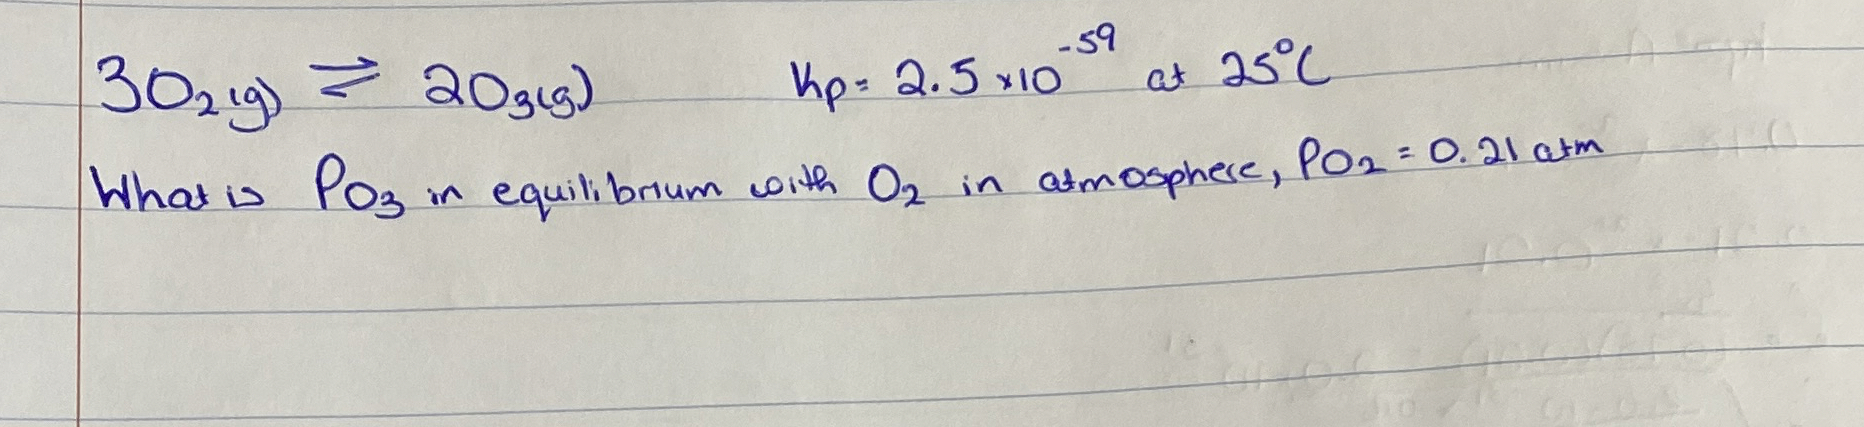 3O₂(g) ⇌ 2O₃(g) Kp = 2.5 ×10⁻⁵⁹ at 25°C
What is PO₃ in equilibrium with O₂ in atmosphere, PO₂ = 0.21 atm